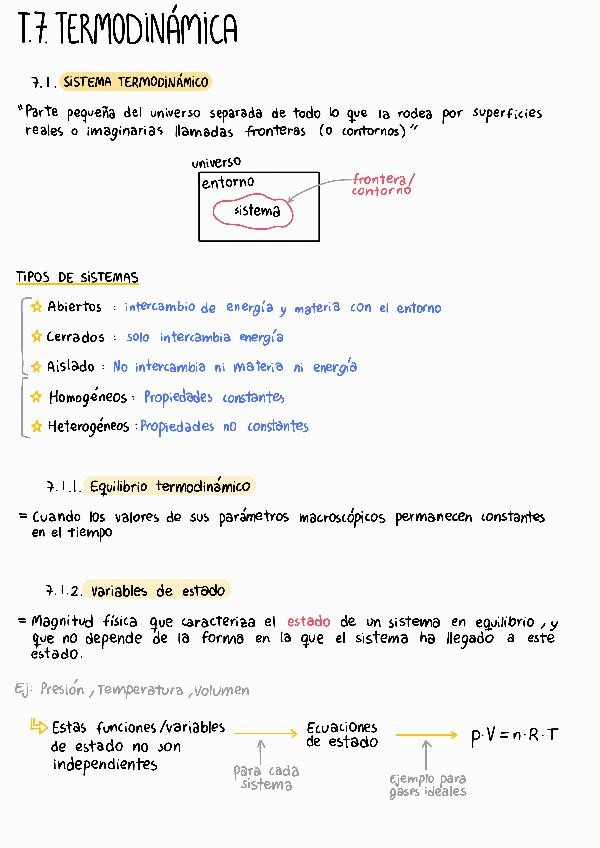 T.7. TERMODINÁMICA
7.1. SISTEMA TERMODINÁMICO
"Parte pequeña del universo separada de todo lo que la rodea por superficies
reales o imaginarias llamadas fronteras (o contornos)"
universo
entorno
frontera/
contorno
sistema
TIPOS DE SISTEMAS
☆ Abiertos : intercambio de energía y materia con el entorno
☆ Cerrados : solo intercambia energía
☆ Aislado : No intercambia ni materia ni energía
☆ Homogéneos : Propiedades constantes
☆ Heterogéneos : Propiedades no constantes
7.1.1. Equilibrio termodinámico
= Cuando los valores de sus parámetros macroscópicos permanecen constantes
en el tiempo
7.1.2. Variables de estado
= Magnitud física que caracteriza el estado de un sistema en equilibrio, y
que no depende de la forma en la que el sistema ha llegado a este
estado.
Ej: Presión, Temperatura, Volumen
Estas funciones/variables
de estado no son
independientes
para cada
sistema
Ecuaciones
de estado
Ejemplo para
gases ideales
p·V = n·R·T